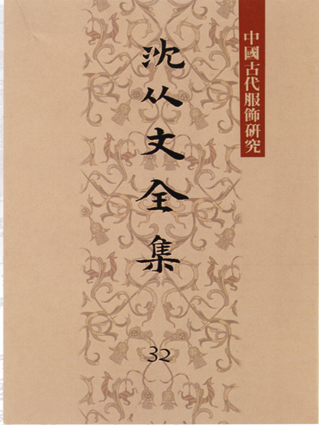 中國古代服飾研究
沈从文全集
32